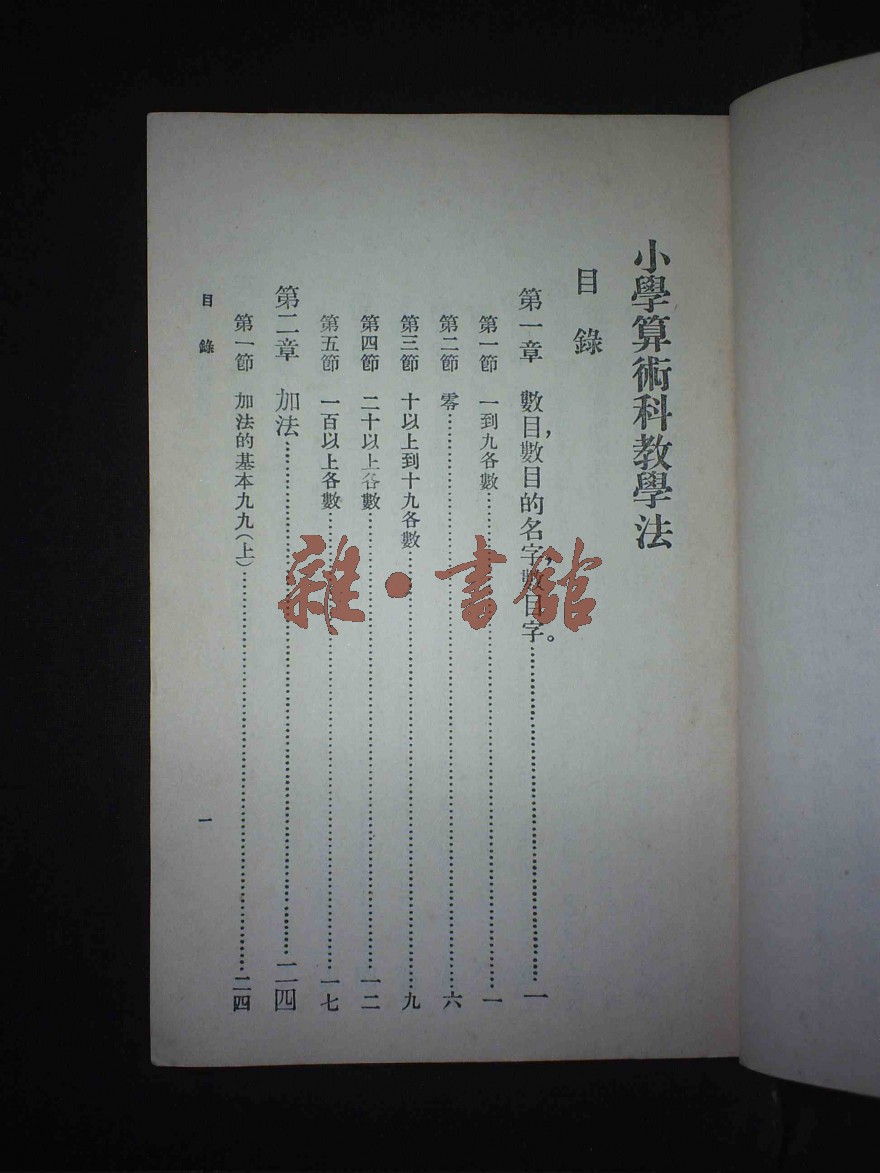 小學算術科教學法
目錄
第一章 數目，數目的名字，數目字。……一
第一節 一到九各數……一
第二節 零……六
第三節 十以上到十九各數……九
第四節 二十以上各數……一二
第五節 一百以上各數……一七
第二章 加法……二四
第一節 加法的基本九九（上）……二四
目錄
一
雜·書館